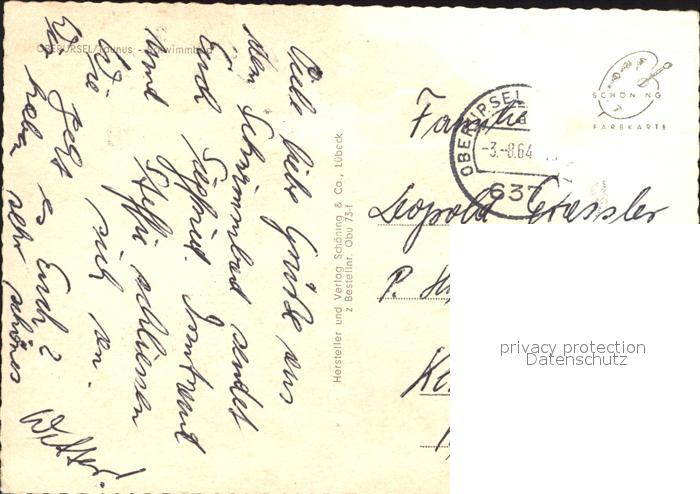 OBERURSEL/Taunus - Schwimmbad
Viele liebe Grüße aus
dem Schwimmbad sendet
Euch Siegfried. Irmtraut
und Steffi schliessen
sich an.
Wie geht es Euch?
Wir haben sehr schönes
Wetter!
Hersteller und Verlag Schöning & Co., Lübeck
Z Bestellnr. Obu 73-f
SCHÖNING
FARBKARTE
OBERURSEL
-3.-8.64
637
Familie
Leopold
P.
privacy protection
Datenschutz